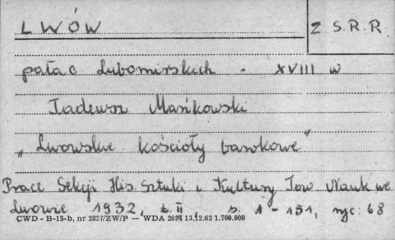 LWÓW
Z S.R.R.
pałac Lubomirskich - XVIII w
Tadeusz Mańkowski
„Lwowskie kościoły barokowe"
Prace Sekcji His. Sztuki i Kultury Tow. Nauk we
Lwowie 1932, t. II s. 1 - 151, ryc. 68
CWD - B-15-b, nr 2827/ZW/P — WDA 13.12.62 1.700.000